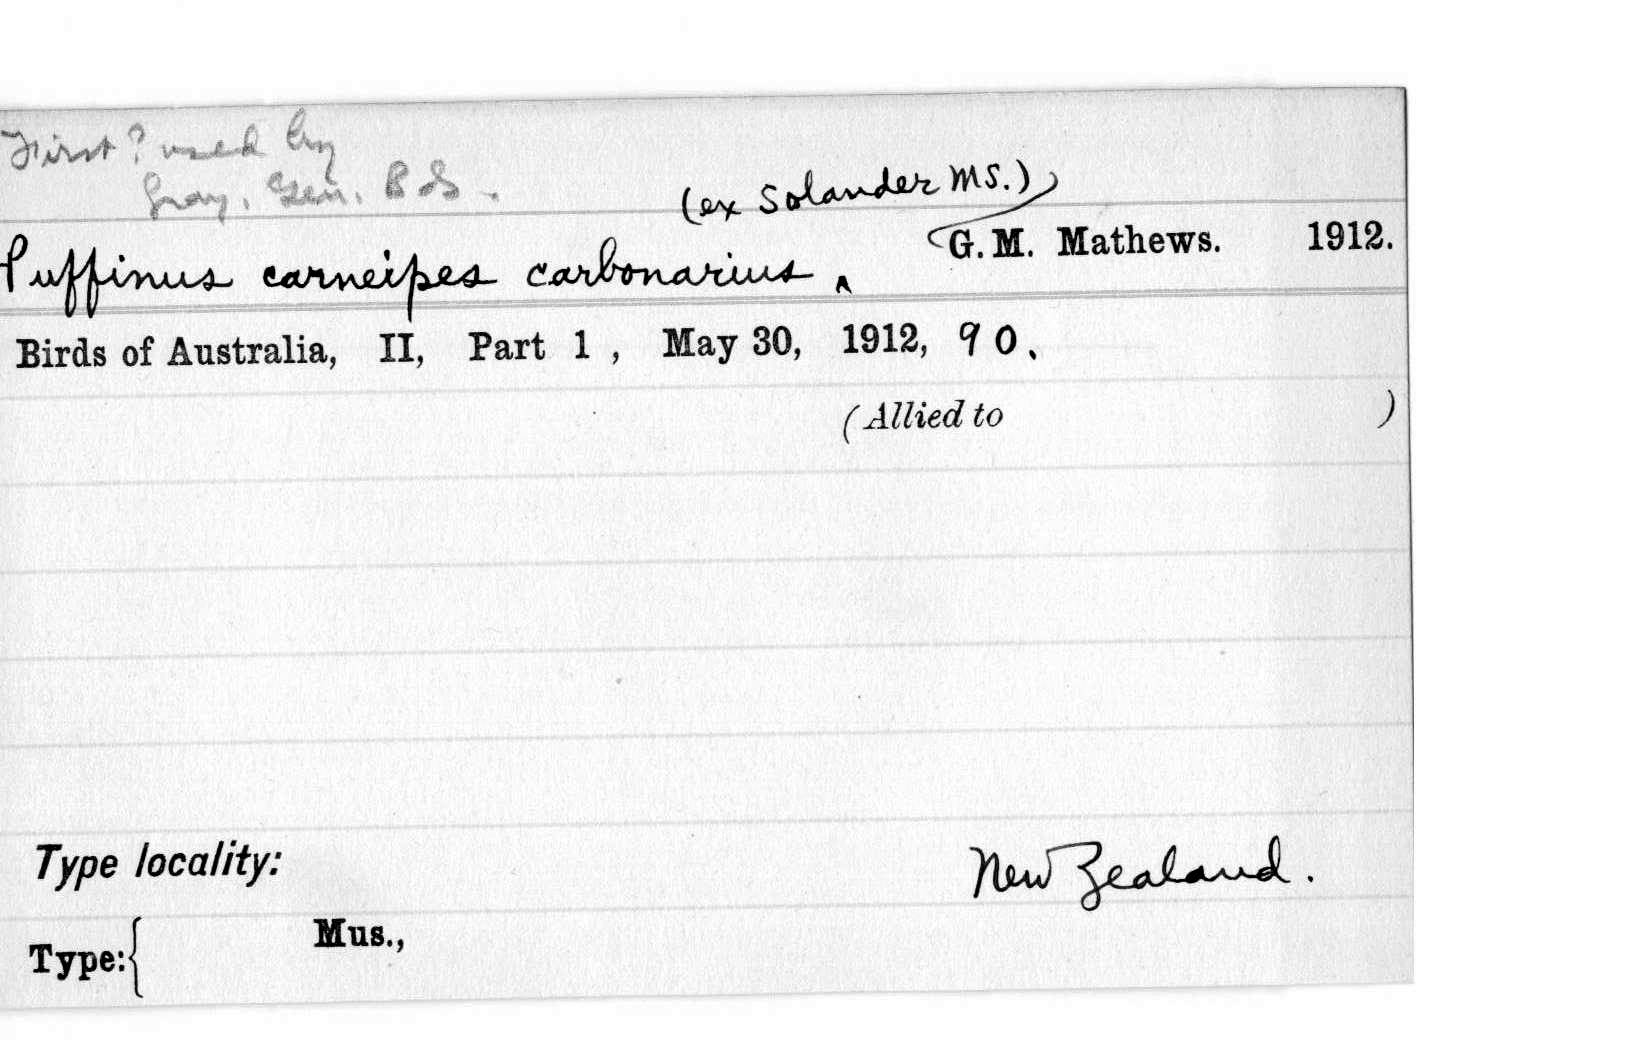 First? used by
Gray, Gen. Bds.
(ex Solander MS.)
Puffinus carneipes carbonarius ‸ G. M. Mathews. 1912.
Birds of Australia, II, Part 1, May 30, 1912, 90.
(Allied to )
Type locality: New Zealand.
Type:{ Mus.,